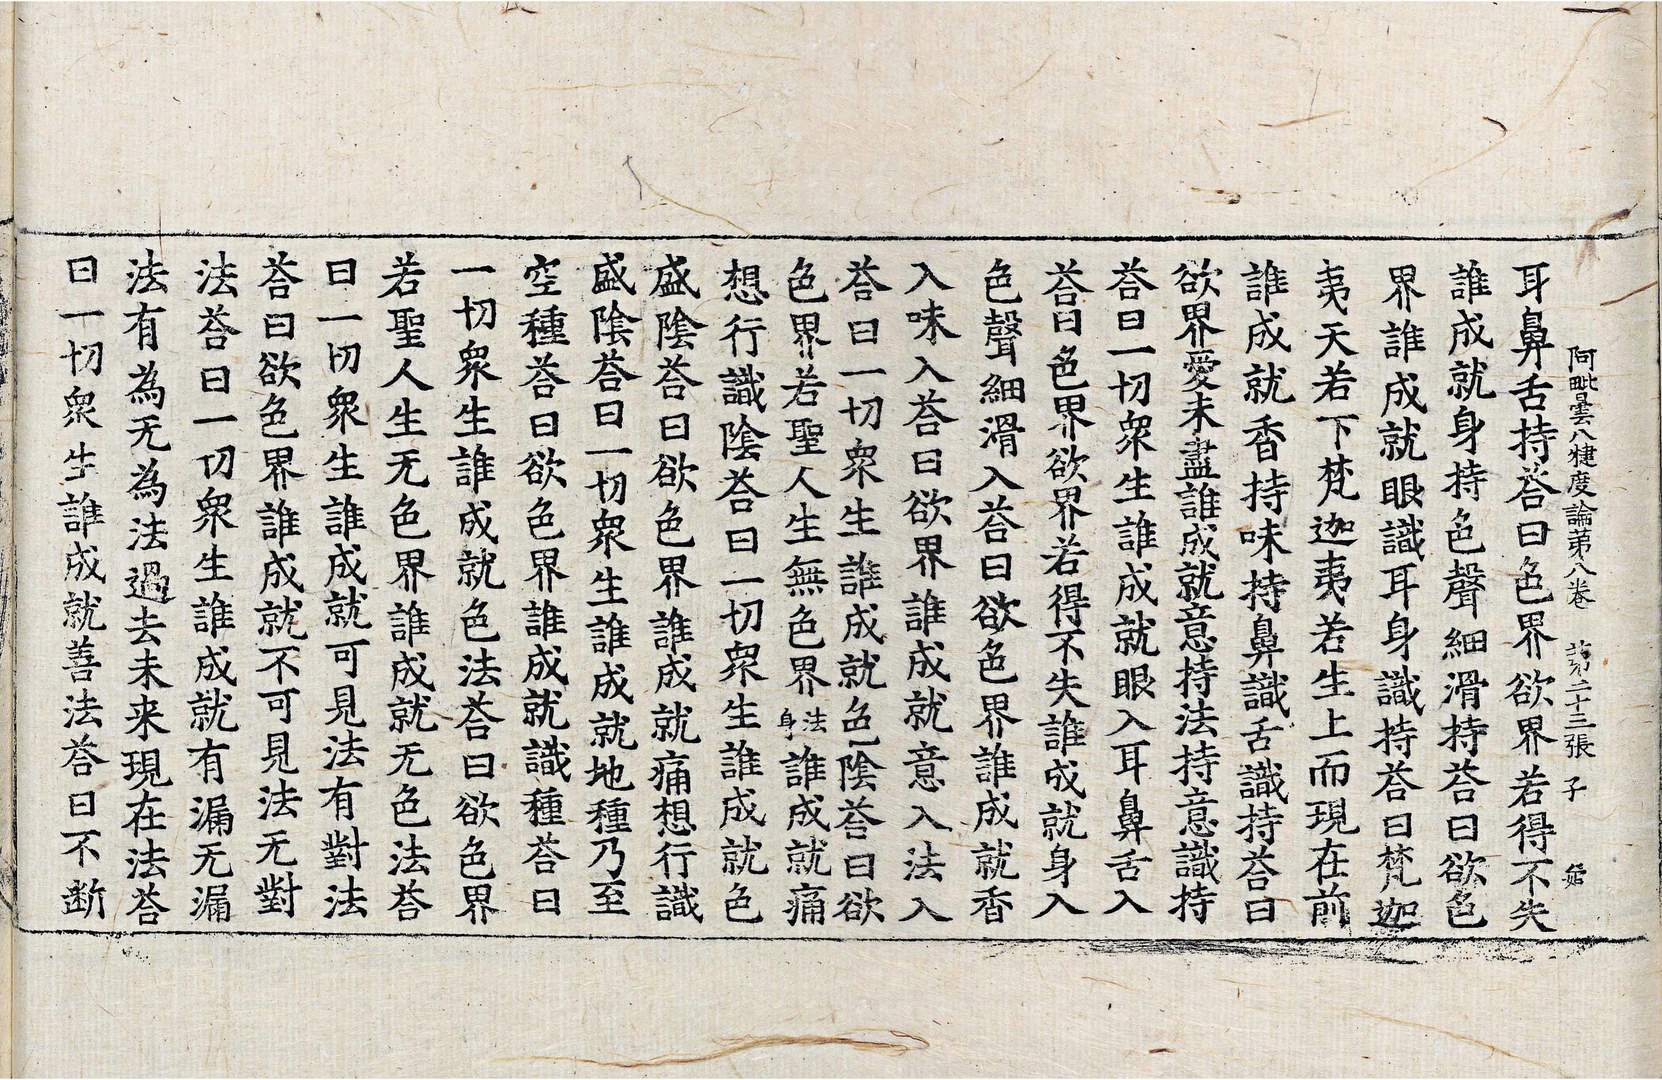 阿毗曇八犍度論第八卷 第二十三張 子
耳鼻舌持荅曰色界欲界若得不失
誰成就身持色聲細滑持荅曰欲色
界誰成就眼識耳身識持荅曰梵迦
夷天若下梵迦夷若生上而現在前
誰成就香持味持鼻識舌識持荅曰
欲界愛未盡誰成就意持法持意識持
荅曰一切衆生誰成就眼入耳鼻舌入
荅曰色界欲界若得不失誰成就身入
色聲細滑入荅曰欲色界誰成就香
入味入荅曰欲界誰成就意入法入
荅曰一切衆生誰成就色陰荅曰欲
色界若聖人生無色界法身誰成就痛
想行識陰荅曰一切衆生誰成就色
盛陰荅曰欲色界誰成就痛想行識
盛陰荅曰一切衆生誰成就地種乃至
空種荅曰欲色界誰成就識種荅曰
一切衆生誰成就色法荅曰欲色界
若聖人生无色界誰成就无色法荅
曰一切衆生誰成就可見法有對法
荅曰欲色界誰成就不可見法无對
法荅曰一切衆生誰成就有漏无漏
法有為无為法過去未来現在法荅
曰一切衆生誰成就善法荅曰不断